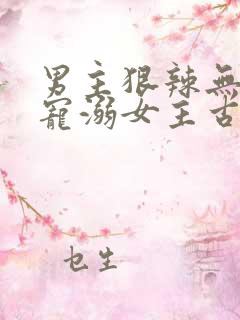 男主狠辣無
寵溺女主古
乜生